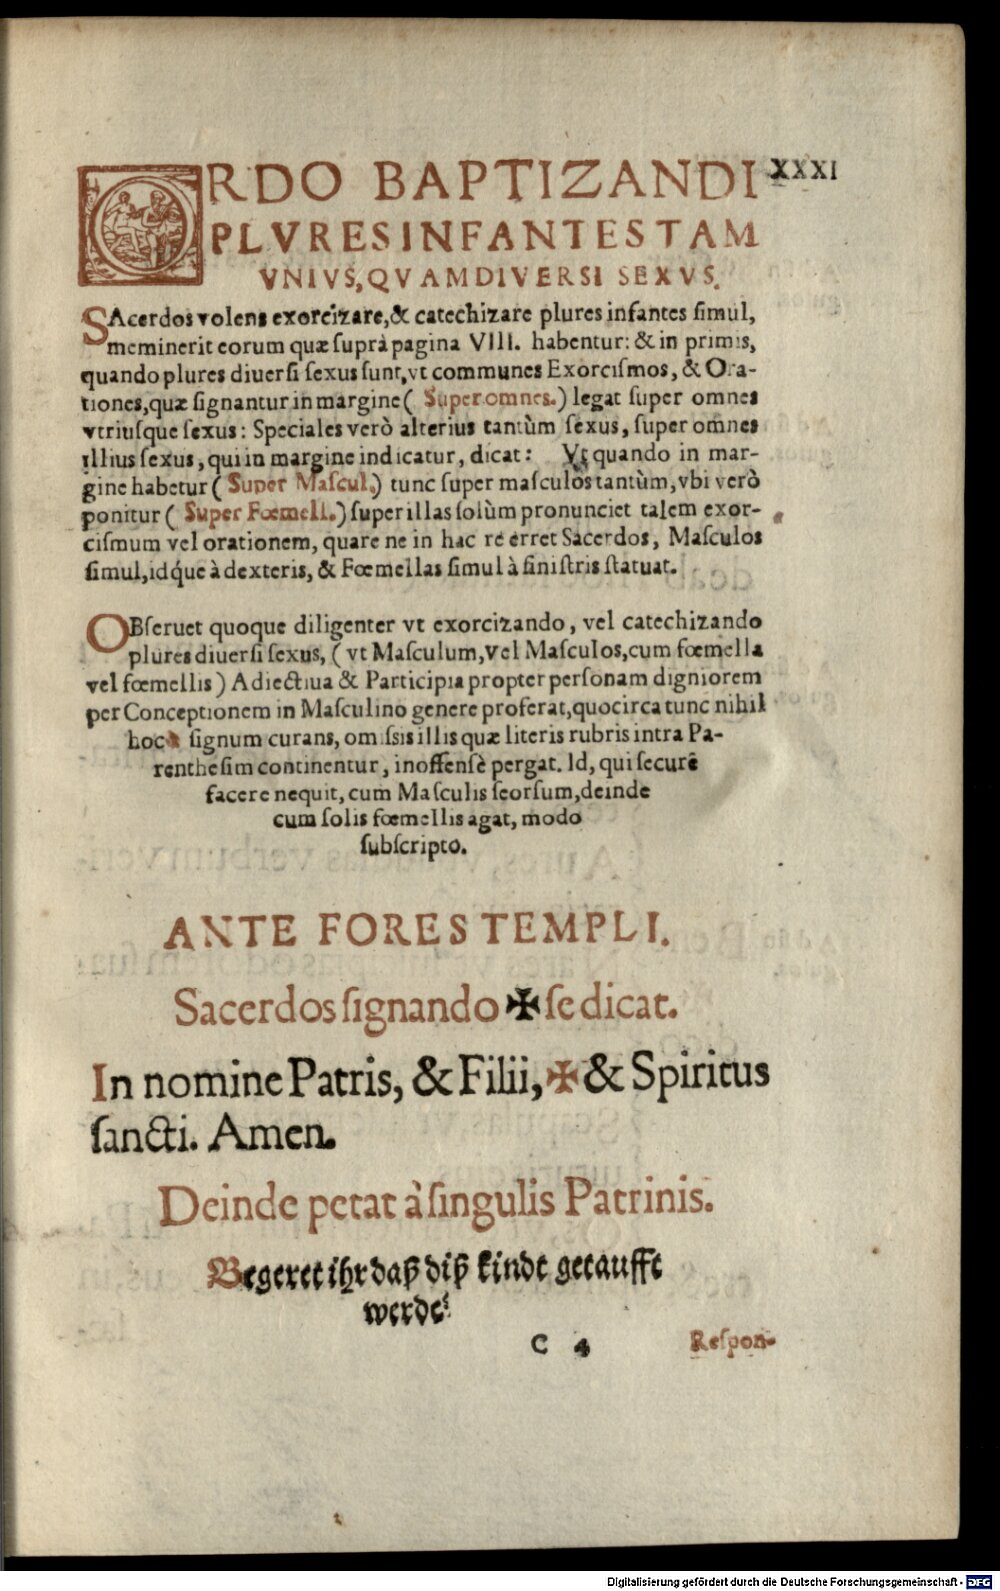 ORDO BAPTIZANDI XXXI
PLVRES INFANTES TAM
VNIVS, QVAM DIVERSI SEXVS.
SAcerdos volens exorcizare, & catechizare plures infantes ſimul,
meminerit eorum quæ ſuprà pagina VIII. habentur: & in primis,
quando plures diuerſi ſexus ſunt, vt communes Exorciſmos, & Ora-
tiones, quæ ſignantur in margine ( Super omnes.) legat ſuper omnes
vtriuſque ſexus: Speciales verò alterius tantùm ſexus, ſuper omnes
illius ſexus, qui in margine indicatur, dicat: Vt quando in mar-
gine habetur ( Super Maſcul.) tunc ſuper maſculos tantùm, vbi verò
ponitur ( Super Fœmell.) ſuper illas ſolùm pronunciet talem exor-
ciſmum vel orationem, quare ne in hac re erret Sacerdos, Maſculos
ſimul, idq́ue à dexteris, & Fœmellas ſimul à ſiniſtris ſtatuat.
OBſeruet quoque diligenter vt exorcizando, vel catechizando
plures diuerſi ſexus, ( vt Maſculum, vel Maſculos, cum fœmella
vel fœmellis ) Adiectiua & Participia propter perſonam digniorem
per Conceptionem in Maſculino genere proferat, quocirca tunc nihil
hoc ſignum curans, omiſsis illis quæ literis rubris intra Pa-
rentheſim continentur, inoffenſè pergat. Id, qui ſecurê
facere nequit, cum Maſculis ſeorſum, deinde
cum ſolis fœmellis agat, modo
ſubſcripto.
ANTE FORES TEMPLI.
Sacerdos ſignando ✠ ſe dicat.
In nomine Patris, & Filii, ✠ & Spiritus
ſancti. Amen.
Deinde petat à ſingulis Patrinis.
Begeret ihr daß diß kindt getaufft
werde?
C 4 Reſpon-
Digitalisierung gefördert durch die Deutsche Forschungsgemeinschaft - DFG